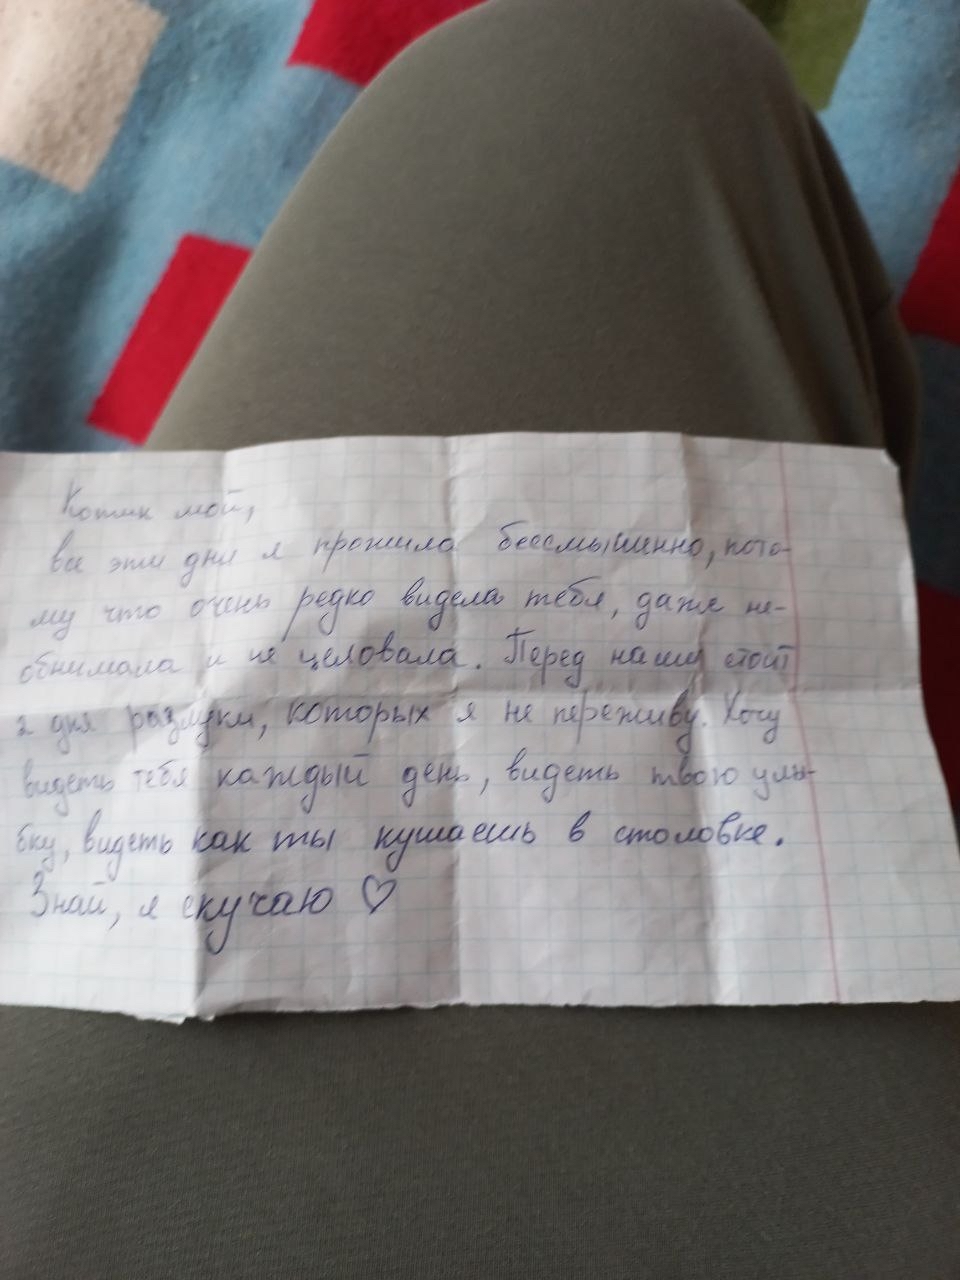 Котик мой,
все эти дни я прожила бессмышенно, пото-
му что очень редко видела тебя, даже не-
обнимала и не целовала. Перед нами стоит
2 дня разлуки, которых я не переживу. Хочу
видеть тебя каждый день, видеть твою улы-
бку, видеть как ты кушаешь в столовке.
Знай, я скучаю ♡